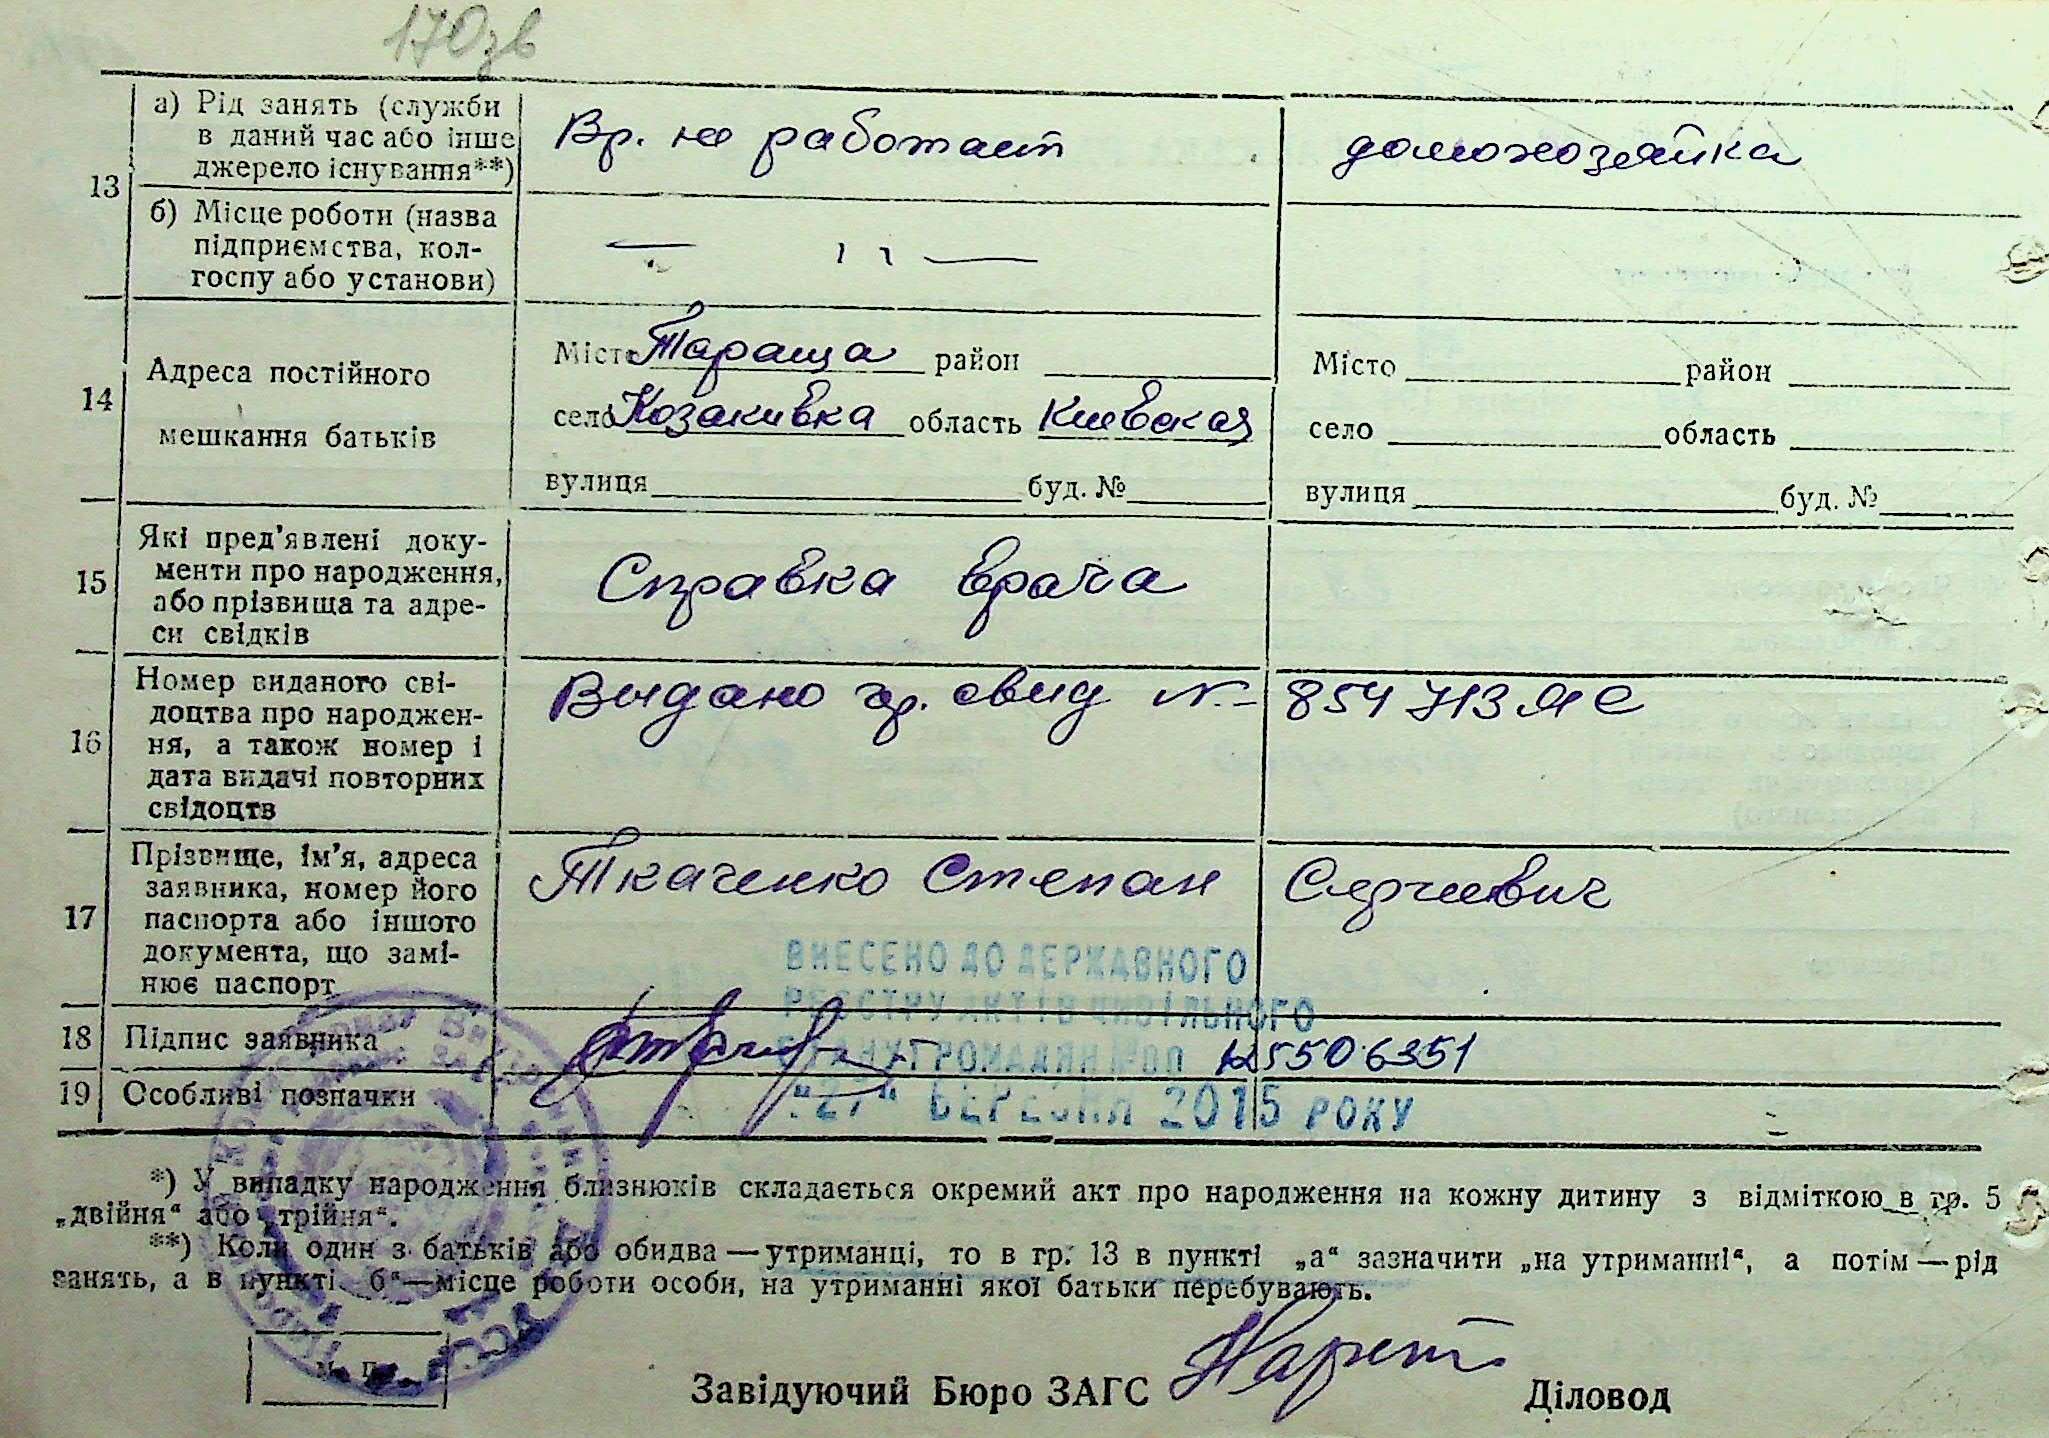 170зв
13
а) Рід занять (служби
в даний час або інше
джерело існування**)
Вр. не работает
домохозяйка
б) Місце роботи (назва
підприємства, кол-
госпу або установи)
— „ —
14
Адреса постійного
мешкання батьків
Місто Тараща район
село Козакивка область Киевская
вулиця буд. №
Місто район
село область
вулиця буд. №
15
Які пред'явлені доку-
менти про народження,
або прізвища та адре-
си свідків
Справка врача
16
Номер виданого сві-
доцтва про народжен-
ня, а також номер і
дата видачі повторних
свідоцтв
Выдано гр. свид № 854713 ЯС
17
Прізвище, ім'я, адреса
заявника, номер його
паспорта або іншого
документа, що замі-
нює паспорт
Ткаченко Степан Сергиевич
ВНЕСЕНО ДО ДЕРЖАВНОГО
РЕЄСТРУ АКТІВ ЦИВІЛЬНОГО
СТАНУ ГРОМАДЯН №00 125506351
"27" БЕРЕЗНЯ 2015 РОКУ
18 Підпис заявника
19 Особливі позначки
*) У випадку народження близнюків складається окремий акт про народження на кожну дитину з відміткою в гр. 5
„двійня“ або „трійня“.
**) Коли один з батьків або обидва — утриманці, то в гр. 13 в пункті „а“ зазначити „на утриманні“, а потім — рід
занять, а в пункті „б“ — місце роботи особи, на утриманні якої батьки перебувають.
м. п.
Завідуючий Бюро ЗАГС
Діловод